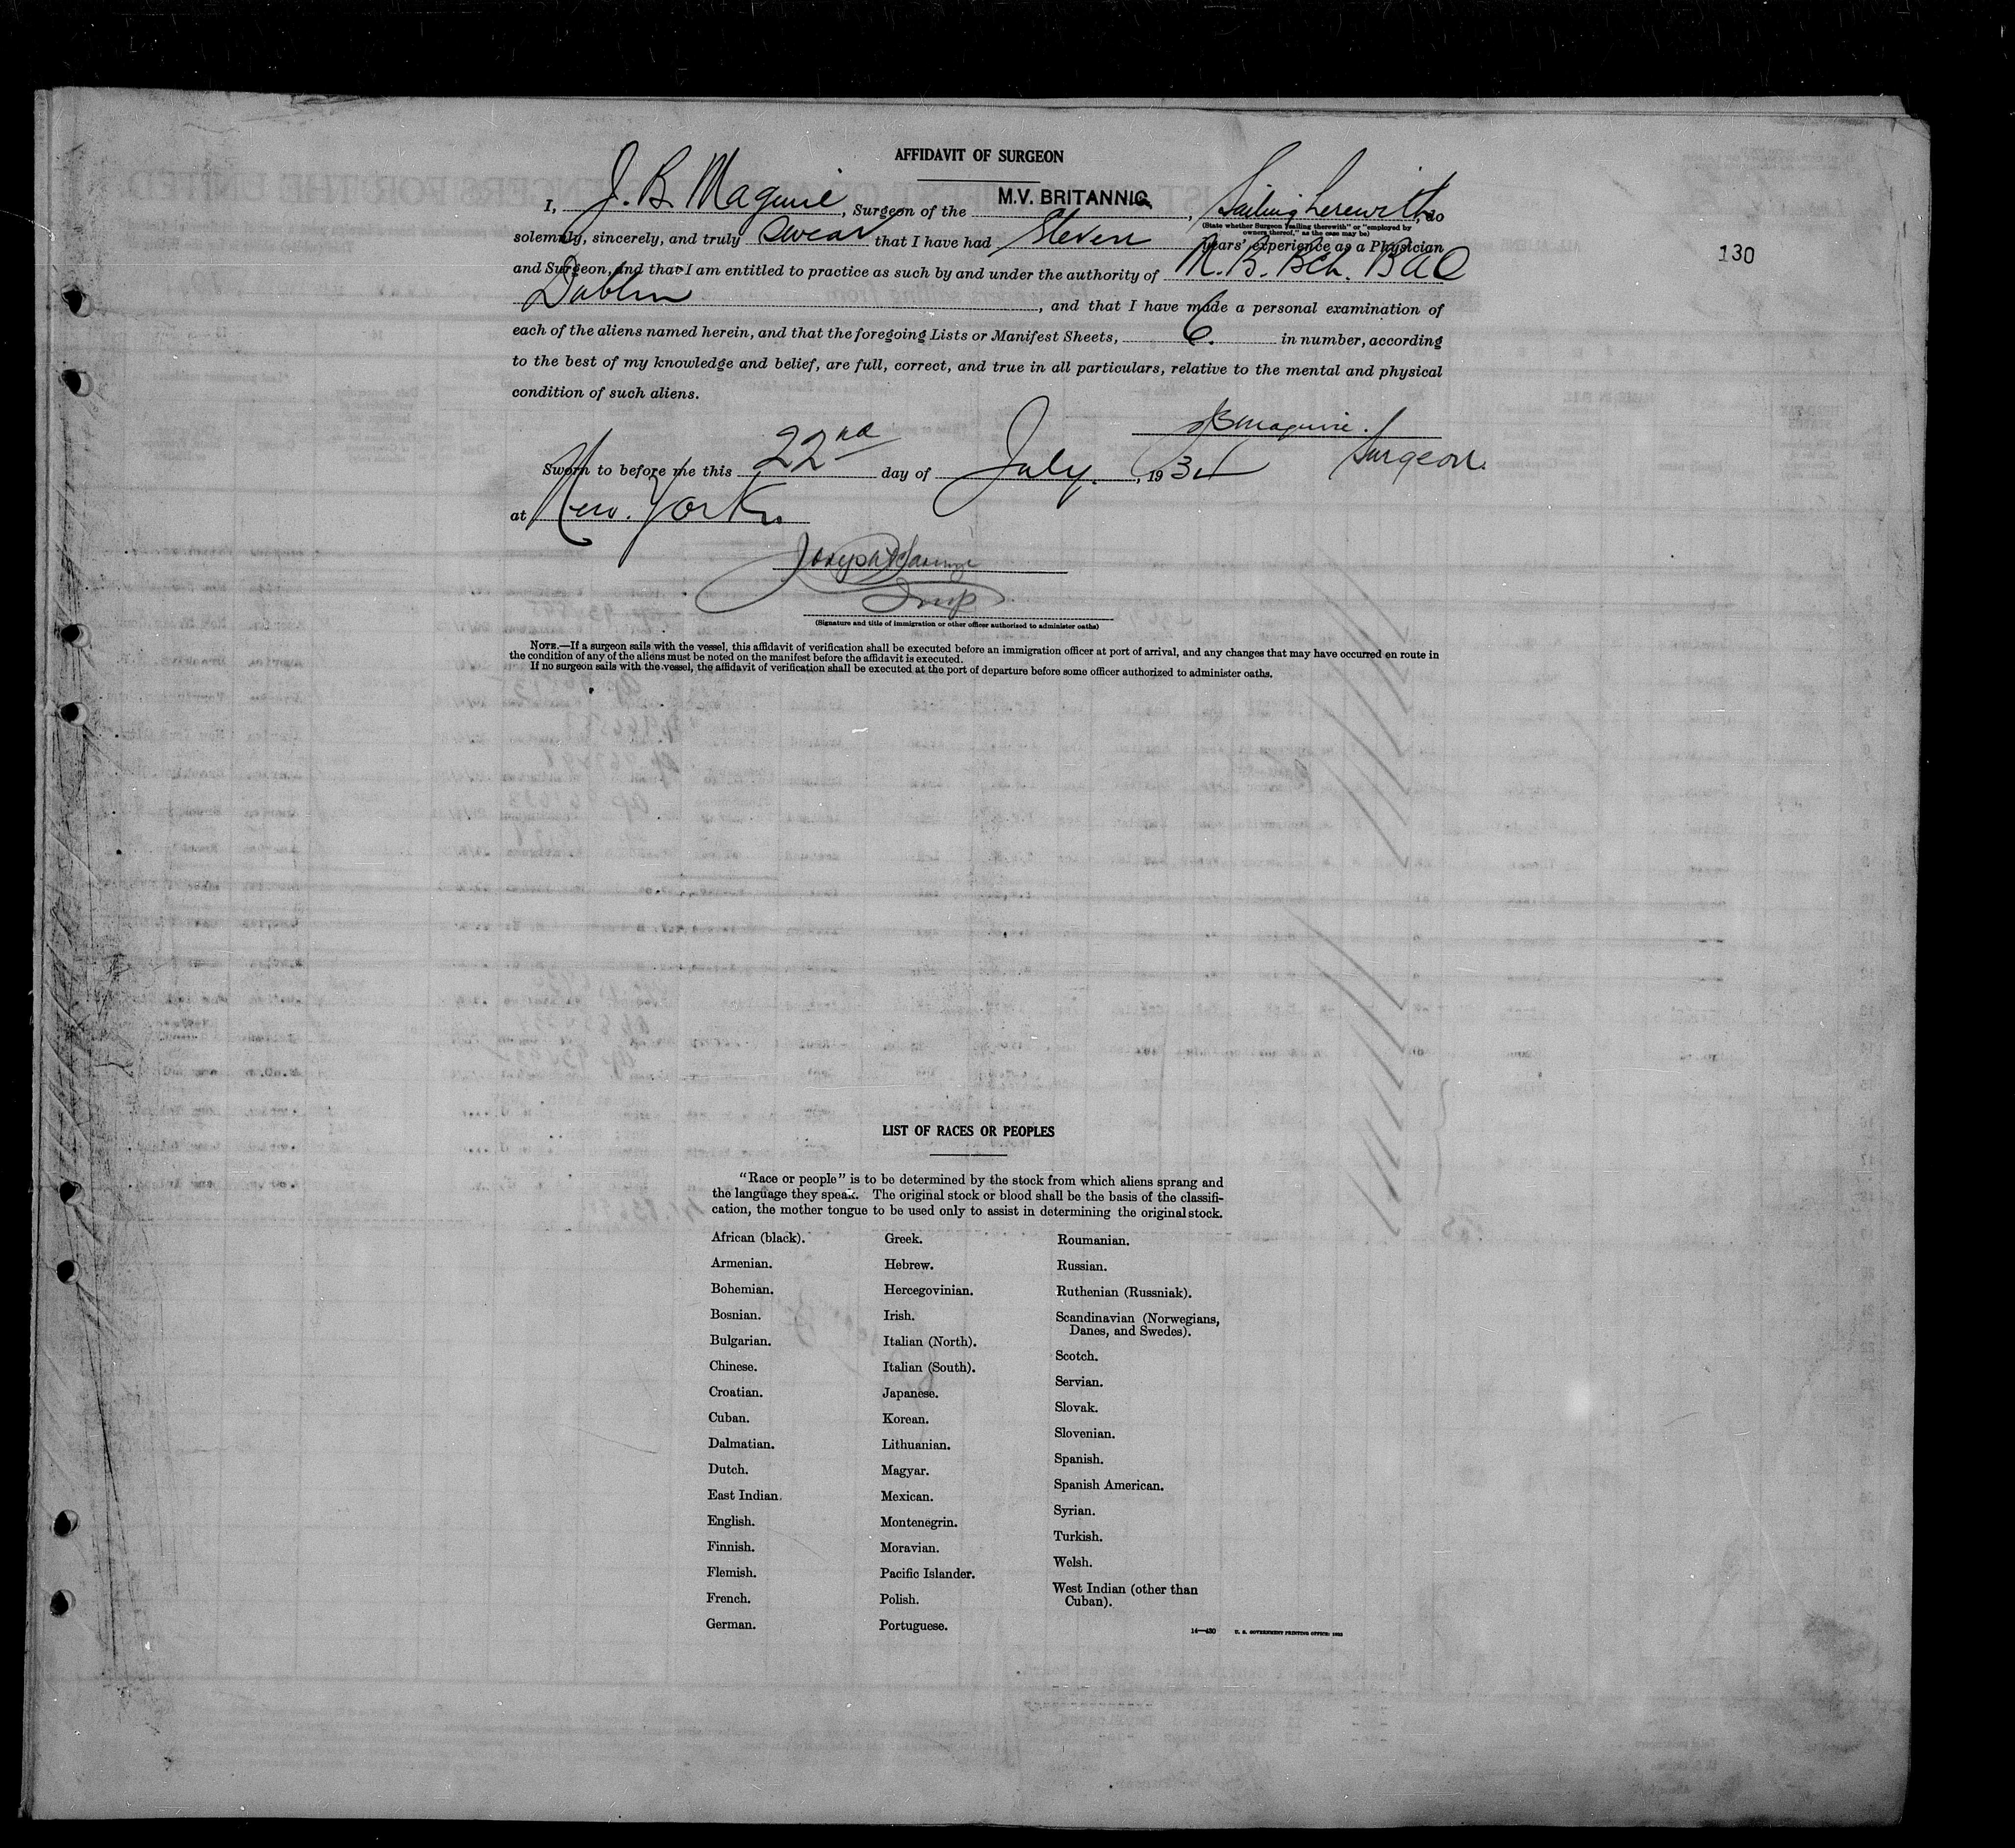 AFFIDAVIT OF SURGEON
130
I, J. B. Maguire, Surgeon of the M.V. BRITANNIC, Sailing herewith, do
(State whether Surgeon "sailing therewith" or "employed by owners thereof," as the case may be)
solemnly, sincerely, and truly swear that I have had years' experience as a Physician
and Surgeon, and that I am entitled to practice as such by and under the authority of M. B. BCh. BAO
Dublin, and that I have made a personal examination of
each of the aliens named herein, and that the foregoing Lists or Manifest Sheets, 6. in number, according
to the best of my knowledge and belief, are full, correct, and true in all particulars, relative to the mental and physical
condition of such aliens.
JB Maguire.
Surgeon.
Sworn to before me this 22nd day of July., 193
at New York.
Joseph
Insp
(Signature and title of immigration or other officer authorized to administer oaths)
NOTE.—If a surgeon sails with the vessel, this affidavit of verification shall be executed before an immigration officer at port of arrival, and any changes that may have occurred en route in
the condition of any of the aliens must be noted on the manifest before the affidavit is executed.
If no surgeon sails with the vessel, the affidavit of verification shall be executed at the port of departure before some officer authorized to administer oaths.
LIST OF RACES OR PEOPLES
"Race or people" is to be determined by the stock from which aliens sprang and
the language they speak. The original stock or blood shall be the basis of the classifi-
cation, the mother tongue to be used only to assist in determining the original stock.
African (black).
Armenian.
Bohemian.
Bosnian.
Bulgarian.
Chinese.
Croatian.
Cuban.
Dalmatian.
Dutch.
East Indian.
English.
Finnish.
Flemish.
French.
German.
Greek.
Hebrew.
Hercegovinian.
Irish.
Italian (North).
Italian (South).
Japanese.
Korean.
Lithuanian.
Magyar.
Mexican.
Montenegrin.
Moravian.
Pacific Islander.
Polish.
Portuguese.
Roumanian.
Russian.
Ruthenian (Russniak).
Scandinavian (Norwegians,
Danes, and Swedes).
Scotch.
Servian.
Slovak.
Slovenian.
Spanish.
Spanish American.
Syrian.
Turkish.
Welsh.
West Indian (other than
Cuban).
14—430 U. S. GOVERNMENT PRINTING OFFICE: